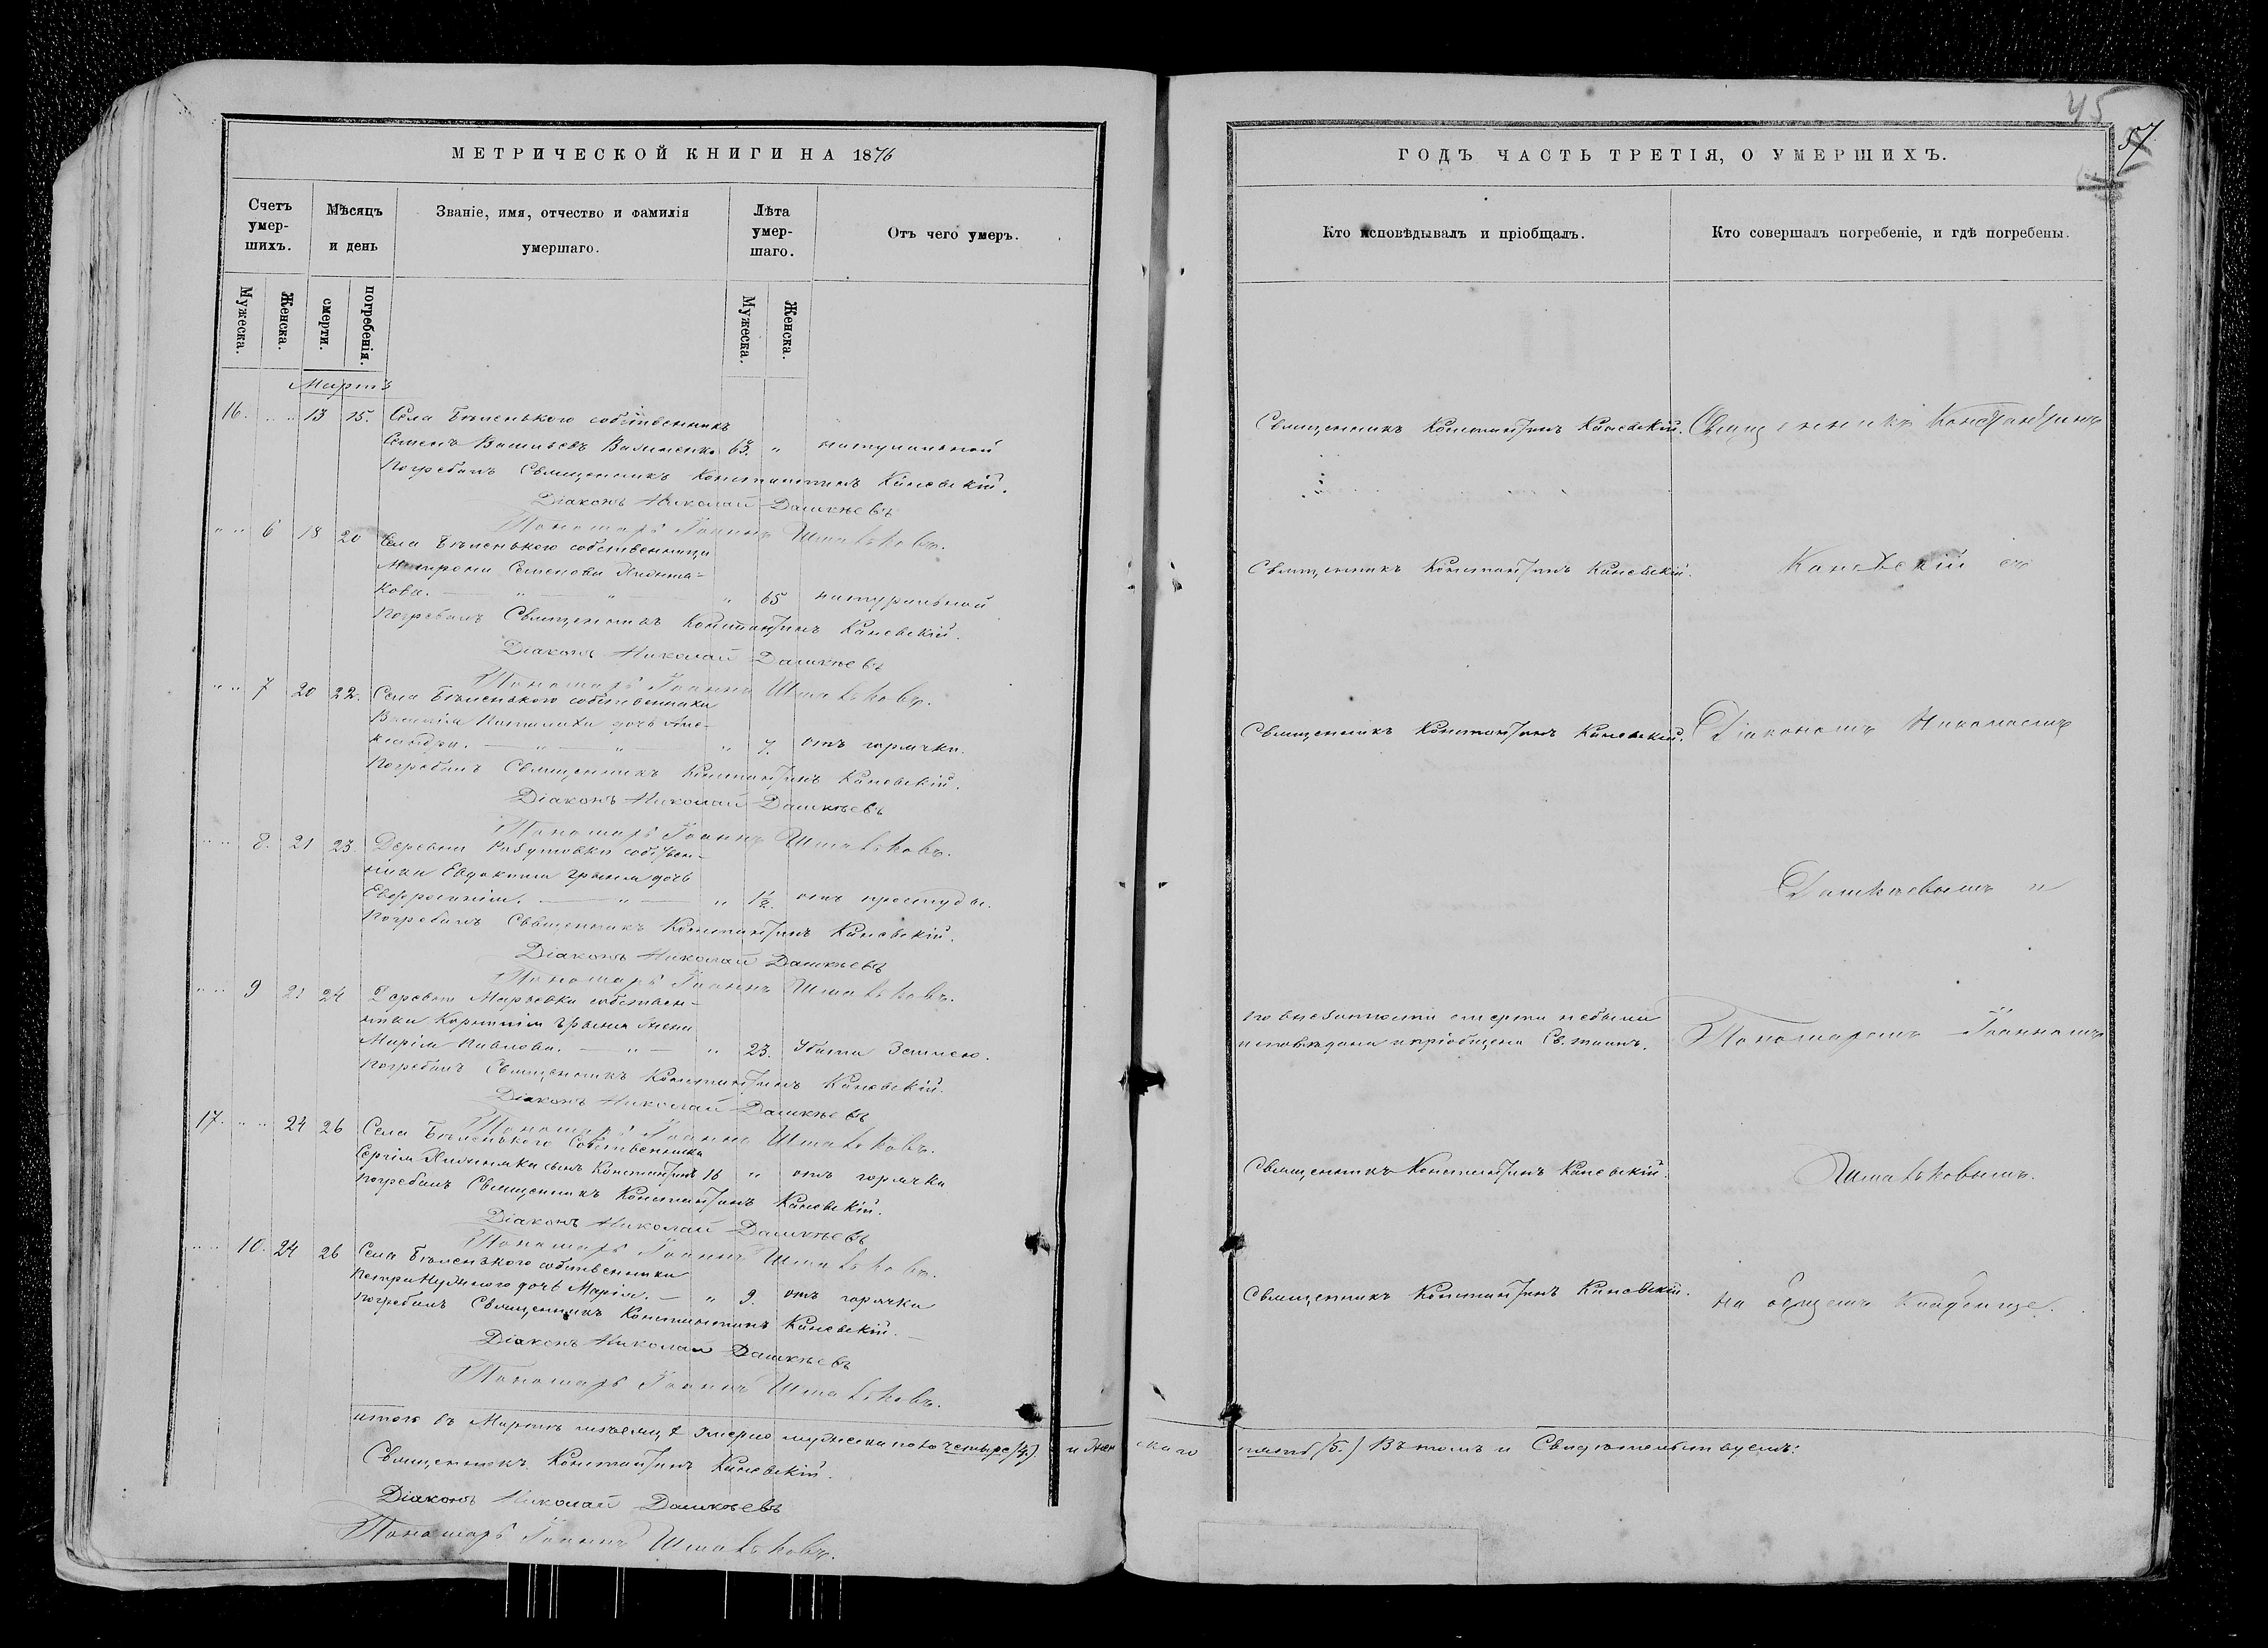 45
57
МЕТРИЧЕСКОЙ КНИГИ НА 1876
ГОДЪ ЧАСТЬ ТРЕТІЯ, О УМЕРШИХЪ.
Счетъ умер-шихъ.
Мѣсяцъ и день
Званіе, имя, отчество и фамилія умершаго.
Лѣта умер-шаго.
Отъ чего умеръ.
Кто исповѣдывалъ и пріобщалъ.
Кто совершалъ погребеніе, и гдѣ погребены.
Мужеска.
Женска.
смерти.
погребенія.
Мужеска.
Женска.
Мартъ
16. " " 13 15. Села Бѣленькою собственникъ
Семенъ Васильевъ 63. " натуральной
Погребалъ Священникъ Константинъ Каневскій.
Діаконъ Николай Дашкѣевъ
Пономарь Іоаннъ
" " 6 18 20 Села Бѣленькою собственница
Матрона Семенова
кова. — " — " " 65 натуральной
Погребалъ Священникъ Константинъ Каневскій.
Діаконъ Николай Дашкѣевъ
Пономарь Іоаннъ
" " 7 20 22. Села Бѣленькою собственника
Василія дочь Але-
ксандра. — " — " " 7. отъ горячки.
Погребалъ Священникъ Константинъ Каневскій.
Діаконъ Николай Дашкѣевъ
Пономарь Іоаннъ
" " 8. 21 23. Деревни собствен-
ника Евдокима дочь
Евфросинія. — " — " 1½. отъ простуды.
Погребалъ Священникъ Константинъ Каневскій.
Діаконъ Николай Дашкѣевъ
Пономарь Іоаннъ
" " 9 24 Деревни Марьевки собствен-
ника жена
Марія Павлова. — " — " 23. Убита Землею.
Погребалъ Священникъ Константинъ Каневскій.
Діаконъ Николай Дашкѣевъ
Пономарь Іоаннъ
17. " " 24 26 Села Бѣленького Собственника
Сергія сынъ Константинъ 16 " отъ горячки
Погребалъ Священникъ Константинъ Каневскій.
Діаконъ Николай Дашкѣевъ
Пономарь Іоаннъ
" " 10. 24 26 Села Бѣленького собственника
Петра дочь Марія. — " 9. отъ горячки
Погребалъ Священникъ Константинъ Каневскій.
Діаконъ Николай Дашкѣевъ
Пономарь Іоаннъ
итого въ Мартѣ мѣсяцѣ умерло мужеска пола четыре (4.) и жен
Священникъ Константинъ Каневскій.
Діаконъ Николай Дашкѣевъ
Пономарь Іоаннъ
Священникъ Константинъ Каневскій.
Священникъ Константинъ Каневскій.
Священникъ Константинъ Каневскій.
по внезапности смерти небыла
исповѣдана и пріобщена Св. таинъ.
Священникъ Константинъ Каневскій.
Священникъ Константинъ Каневскій.
Священникъ Константинъ
Каневскій съ
Діакономъ Николаемъ
Дашкѣевымъ и
Пономаремъ Іоанномъ
На общемъ кладбищѣ.
скаго пять (5.) Въ томъ и Свидѣтельствуемъ: